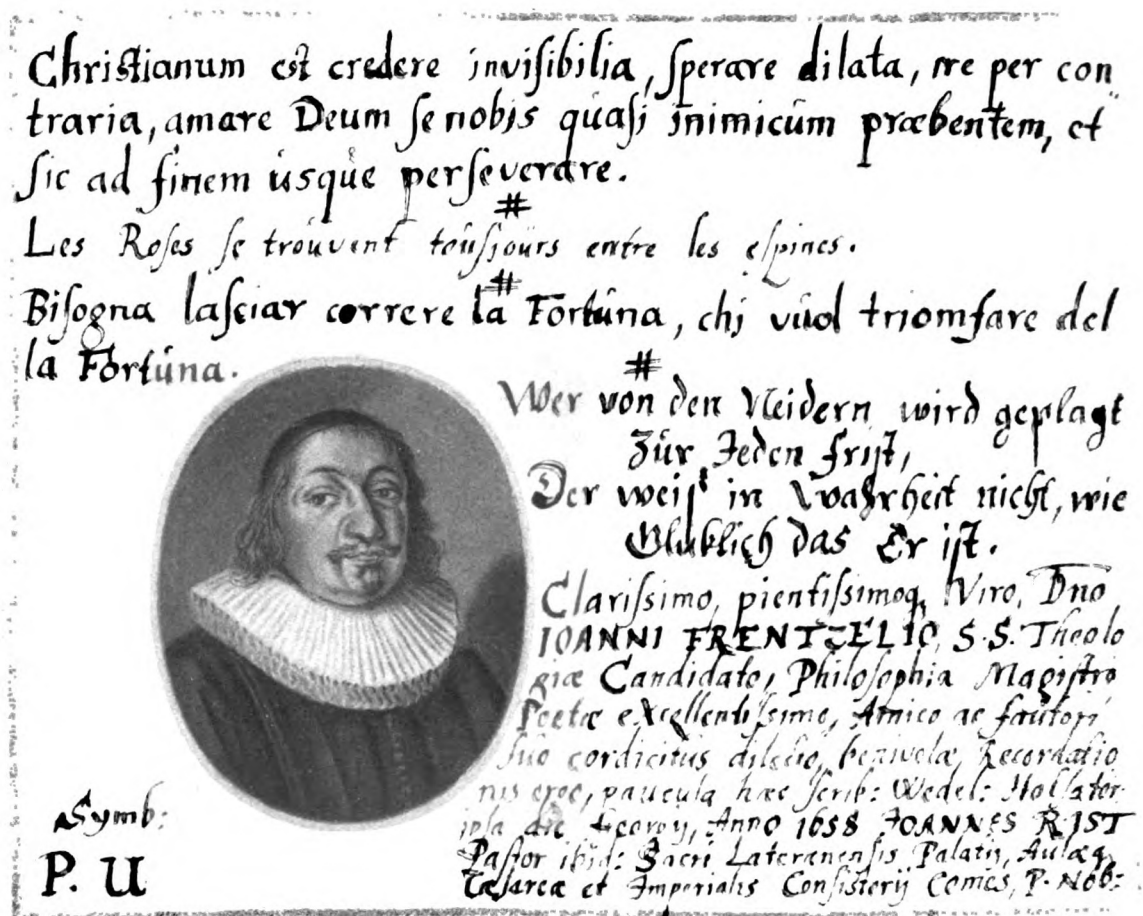 Christianum est credere invisibilia, sperare dilata, ire per con„
traria, amare Deum se nobis quasi inimicum præbentem, et
sic ad finem usque perseverare.
#
Les Roses se trouvent tousjours entre les espines.
#
Bisogna lasciar correre la Fortuna, chi vuol triomfare del
la Fortuna.
#
Wer von den Neidern wird geplagt
Zur Jeden frist,
Der weiß in Wahrheit nicht, wie
Gluklich das Er ist.
Clarissimo, pientissimoq, Viro, Dno
IOANNI FRENTZELIO, S.S. Theolo
giæ Candidato, Philosophia Magistro
Poetæ excellentissimo, Amico ac fautori
suo cordicitus dilecto, benivolæ, Recordatio
nis ergo, paucula hæc scrib: Wedel: Holsator.
ipsa die Georgij, Anno 1658 JOANNES RIST
Pastor ibid: Sacri Lateranensis Palatij, Aulæq,
Cæsareæ et Imperialis Consistorij Comes, P. Nob:
Symb:
P. U